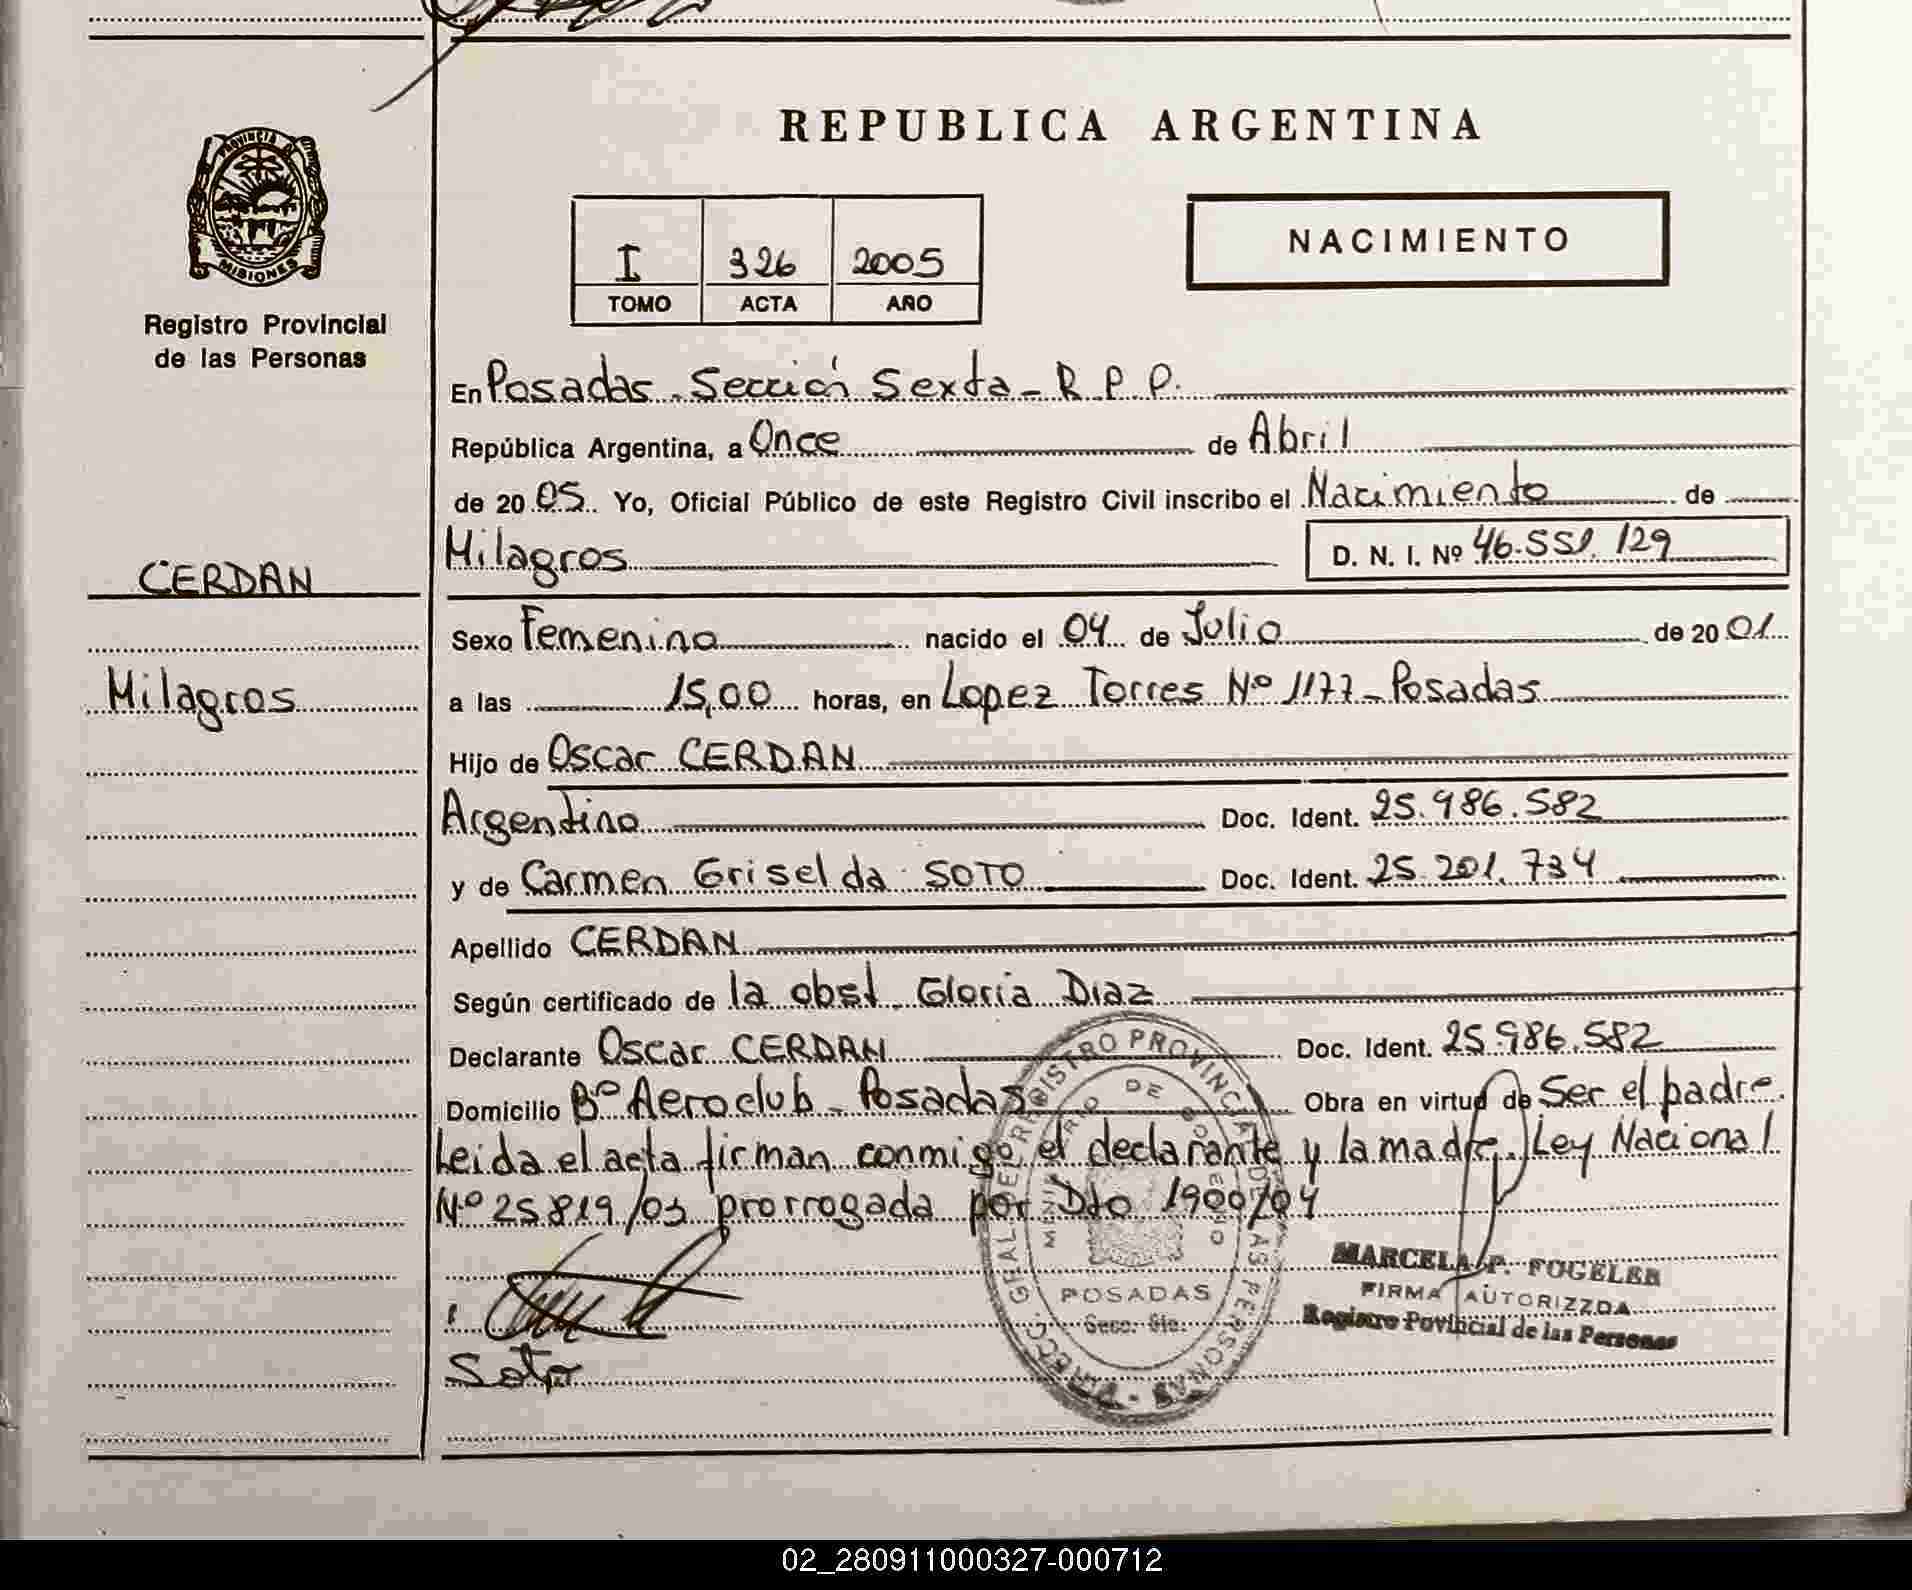 REPUBLICA ARGENTINA
PROVINCIA DE
MISIONES
Registro Provincial
de las Personas
I 326 2005
TOMO ACTA AÑO
NACIMIENTO
En Posadas - Sección Sexta - R.P.P.
República Argentina, a Once de Abril
de 20 05. Yo, Oficial Público de este Registro Civil inscribo el Nacimiento de
Milagros D. N. I. Nº 46.551.129
CERDAN
Milagros
Sexo Femenino nacido el 04 de Julio de 20 01
a las 15,00 horas, en Lopez Torres Nº 1177 - Posadas
Hijo de Oscar CERDAN
Argentino Doc. Ident. 25.986.582
y de Carmen Griselda SOTO Doc. Ident. 25.201.734
Apellido CERDAN
Según certificado de la obst. Gloria Diaz
Declarante Oscar CERDAN Doc. Ident. 25.986.582
Domicilio Bº Aeroclub - Posadas Obra en virtud de Ser el padre.
Leida el acta firman conmigo el declarante y la madre. Ley Nacional
Nº 25.819/03 prorrogada por Dto 1900/04
POSADAS
Secc. 6ta.
MARCELA P. FOGELER
FIRMA AUTORIZZDA
Registro Povincial de las Personas
Soto
02_280911000327-000712